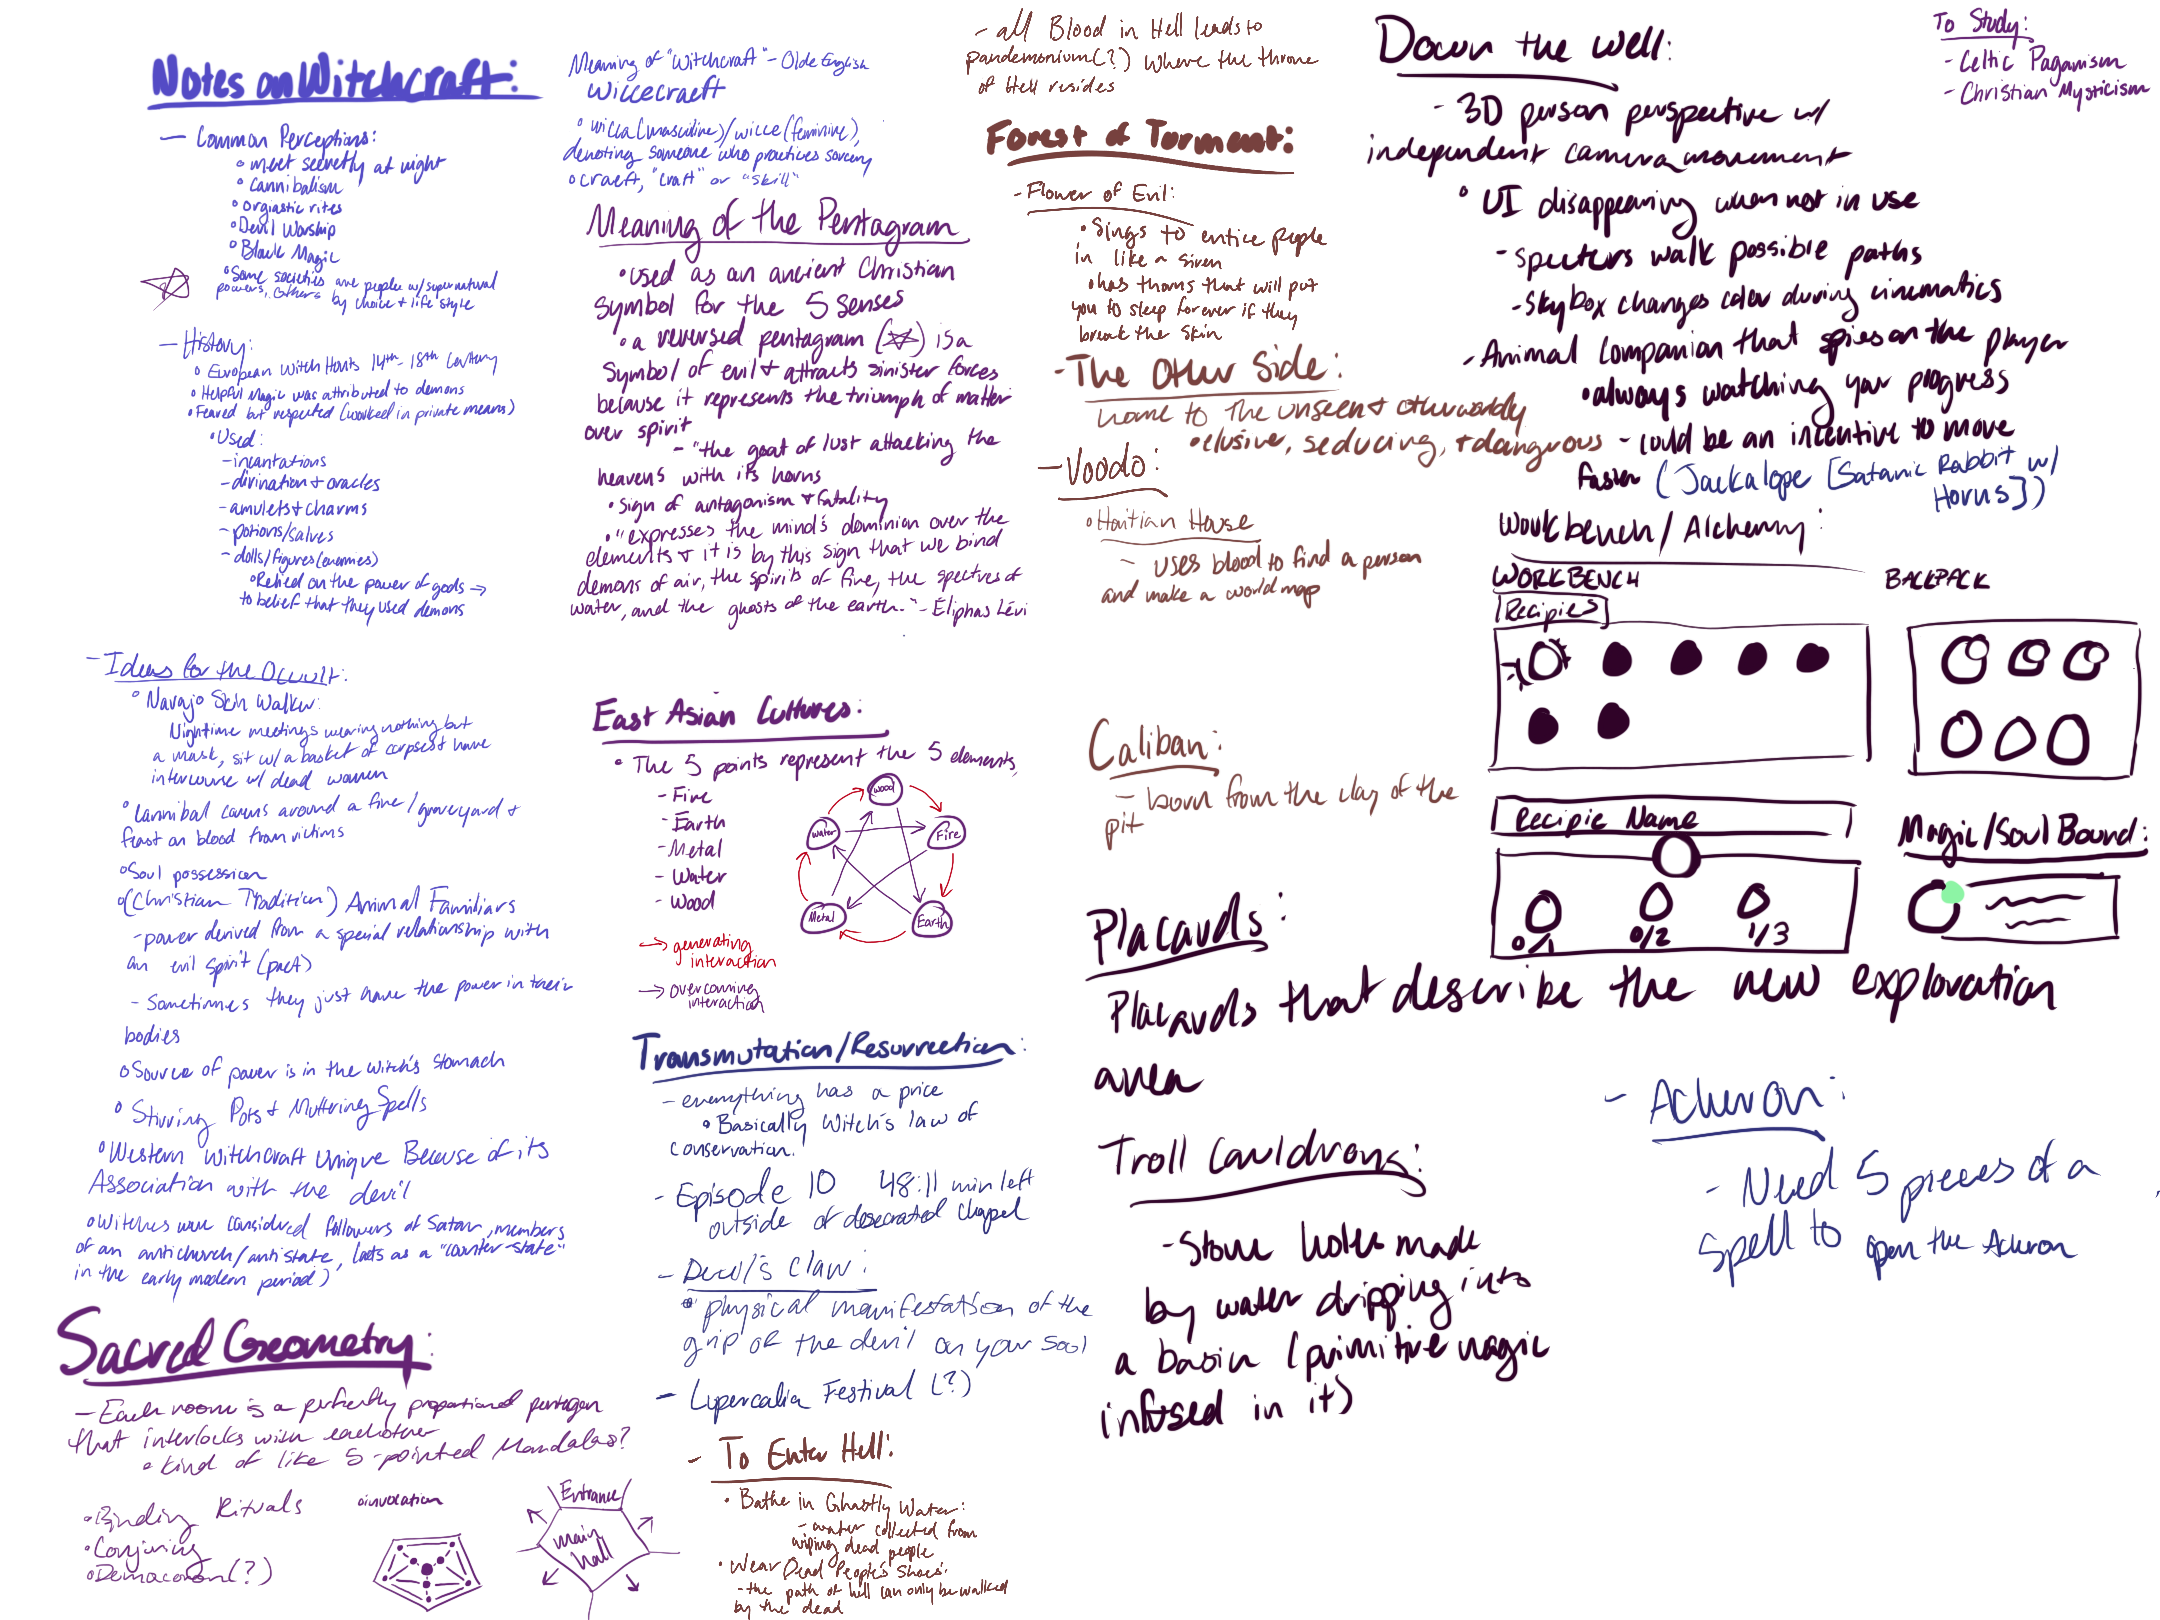 Notes on Witchcraft:
- Common Perceptions:
• meet secretly at night
• Cannibalism
• Orgiastic rites
• Devil Worship
• Black Magic
• Some societies are people w/ supernatural
powers, others by choice + life style
- History:
• European Witch Hunts 14th - 18th Century
• Helpful Magic was attributed to demons
• Feared but respected (worked in private means)
• Used:
- incantations
- divination + oracles
- amulets + charms
- potions/salves
- dolls/figures (enemies)
• Relied on the power of gods →
to belief that they used demons
- Ideas for the Occult:
• Navajo Skin Walker:
Nightime meetings wearing nothing but
a mask, sit w/ a basket of corpses + have
intercourse w/ dead women
• Cannibal covens around a fire/graveyard +
feast on blood from victims
• Soul possession
• (Christian Tradition) Animal Familiars
- power derived from a special relationship with
an evil spirit (pact)
- Sometimes they just have the power in their
bodies
• Source of power is in the witch's stomach
• Stirring Pots + Muttering Spells
• Western Witchcraft Unique Because of its
Association with the devil
• Witches were considered followers of Satan, members
of an antichurch/antistate, (acts as a "counter-state"
in the early modern period)
Sacred Geometry:
- Each room is a perfectly proportioned pentagon
that interlocks with eachother
• kind of like 5-pointed Mandalas?
• Binding Rituals
• Conjuring
• Demacoron(?)
• invocation
Entrance
main
hall
Meaning of "Witchcraft" - Olde English
Wiccecraeft
• wicca (masculine)/wicce (feminine),
denoting someone who practices sorcery
• craeft, "craft" or "skill"
Meaning of the Pentagram
• used as an ancient Christian
symbol for the 5 senses
• a reversed pentagram ( ) is a
symbol of evil + attracts sinister forces
because it represents the triumph of matter
over spirit
- "the goat of lust attacking the
heavens with its horns
• Sign of antagonism + fatality
• "expresses the mind's dominion over the
elements + it is by this sign that we bind
demons of air, the spirits of fire, the spectres of
water, and the ghosts of the earth." - Éliphas Lévi
East Asian Cultures:
• The 5 points represent the 5 elements,
- Fire
- Earth
- Metal
- Water
- Wood
→ generating
interaction
→ overcoming
interaction
Wood
Water
Fire
Metal
Earth
Transmutation/Resurrection:
- everything has a price
• Basically Witch's law of
conservation.
- Episode 10 48:11 min left
outside of desecrated chapel
- Devil's Claw:
• physical manifestation of the
grip of the devil on your soul
- Lupercalia Festival (?)
- To Enter Hell:
• Bathe in Ghastly Water:
- water collected from
wiping dead people
• Wear Dead People's Shoes:
- the path of hell can only be walked
by the dead
- all Blood in Hell leads to
pandemonium(?) where the throne
of Hell resides
Forest of Torment:
- Flower of Evil:
• Sings to entice people
in like a siren
• has thorns that will put
you to sleep forever if they
break the skin
- The Other Side:
home to the unseen + otherworldly
• elusive, seducing, + dangrous
- Voodo:
• Haitian House
- uses blood to find a person
and make a world map
Caliban:
- born from the clay of the
pit
Placards:
Placards that describe the new exploration
area
Troll Cauldrons:
- Stone holes made
by water dripping into
a basin (primitive magic
infused in it)
Down the well:
- 3D person perspective w/
independent camera movement
• UI disappearing when not in use
- specters walk possible paths
- Skybox changes color during cinematics
- Animal Companion that spies on the player
• always watching your progress
- could be an incentive to move
faster (Jackalope [Satanic Rabbit w/
Horns])
Workbench/Alchemy:
WORKBENCH
BACKPACK
Recipies
Recipie Name
0/1
0/2
1/3
Magic/Soul Bound:
- Acheron:
- Need 5 pieces of a
spell to open the Acheron
To Study:
- Celtic Paganism
- Christian Mysticism